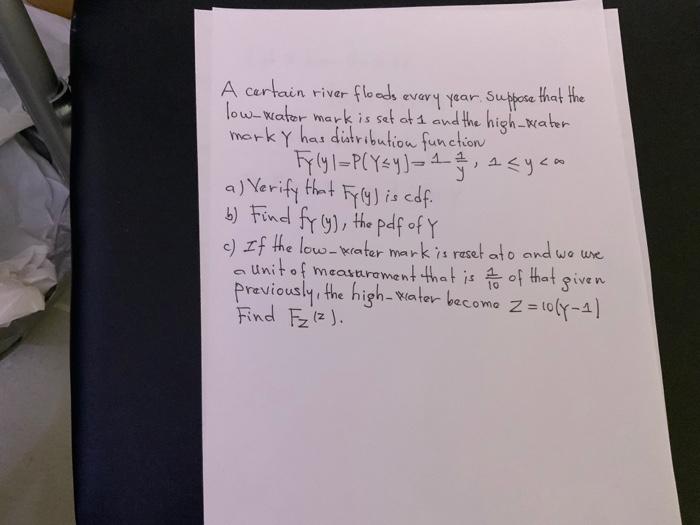 A certain river floods every year. Suppose that the
low-water mark is set at 1 and the high-water
mark Y has distribution function
F_Y(y)=P(Y≤y)=1-1/y, 1≤y<∞
a) Verify that F_Y(y) is cdf.
b) Find f_Y(y), the pdf of Y
c) If the low-water mark is reset at 0 and we use
a unit of measurement that is 1/10 of that given
previously, the high-water become Z=10(Y-1)
Find F_Z(z).